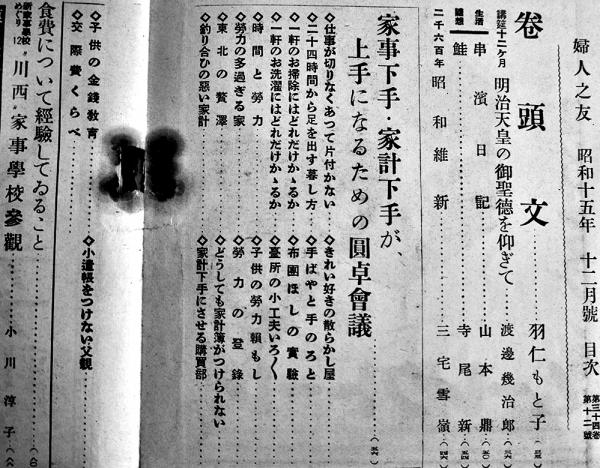 婦人之友 昭和十五年 十二月號 目次 第三十四卷 第十二號
卷頭文……羽仁もと子
講話十二ヶ月 明治天皇の御聖德を仰ぎて……渡邊幾治郎
生活 串濱日記……山本鼎
隨想 鮭……寺尾新
二千六百年 昭和維新……三宅雪嶺
家事下手・家計下手が、
上手になるための圓卓會議
◇仕事が切りなくあつて片付かない ◇きれい好きの散らかし屋
◇二十四時間から足を出す暮し方 ◇手ばやと手のろと
◇一軒のお掃除にはどれだけかゝるか ◇布團ほしの實驗
◇一軒のお洗濯にはどれだけかゝるか ◇臺所の小工夫いろ〱
◇時間と勞力 ◇子供の勞力賴もし
◇勞力の多過ぎる家 ◇勞力の登錄
◇東北の贅澤 ◇どうしても家計簿がつけられない
◇釣り合ひの惡い家計 ◇家計下手にさせる購買部
◇子供の金錢敎育 ◇小遣帳をつけない父親
◇交際費くらべ
食費について經驗してゐること
新家事學校めぐり 12 川西・家事學校參觀……小川淳子